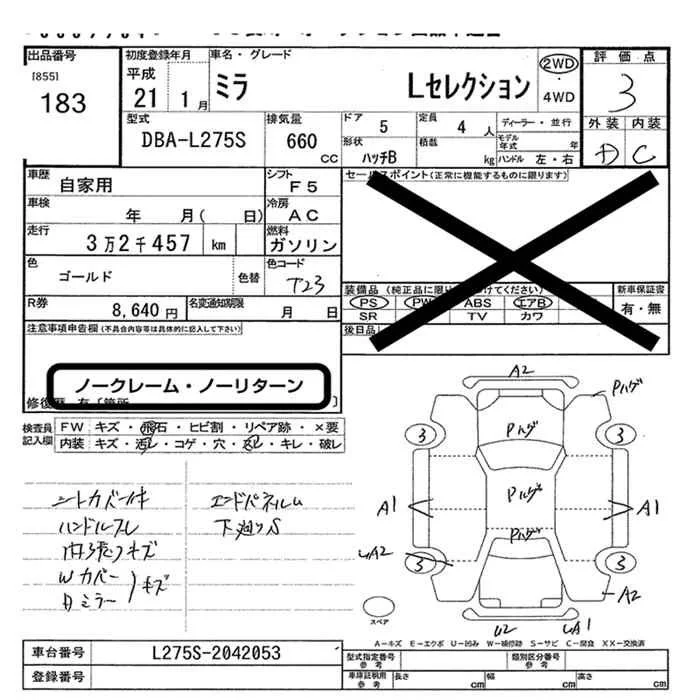 出品番号
[855]
183
初度登録年月
平成
21 1月
車名・グレード
ミラ Lセレクション
2WD
4WD
評価点
3
外装 内装
D C
型式
DBA-L275S
排気量
660 CC
ドア
5
定員
4 人
形状
ハッチB
積載
kg
ディーラー・並行
モデル年式 年
ハンドル 左・右
車歴
自家用
シフト
F5
車検
年 月( 日)
冷房
AC
走行
3万2千457 km
燃料
ガソリン
色
ゴールド
色替
色コード
T23
R券
8,640円
名変通知期限
月 日
セールスポイント(正常に機能するものに限ります)
装備品 (純正品に限り けてください)
PS PW ABS エアB
SR TV カワ
新車保証書
有・無
後日品
注意事項申告欄(不具合内容等は具体的に記入して下さい)
ノークレーム・ノーリターン
修復歴 有 〔箇所 〕
検査員記入欄
FW キズ・飛石・ヒビ割・リペア跡・×要
内装 キズ・汚レ・コゲ・穴・スレ・キレ・破レ
ハンドルスレ
内張りキズ
Wカバー
Dミラー
キズ
エンドパネルム
下廻りS
A2
Pハゲ
Pハゲ
3 3
A1 Pハゲ A1
Pハゲ
UA2
3 3
A2
U2 UA1
スペア
A−キズ E−エクボ U−凹み W−補修跡 S−サビ C−腐食 XX−交換済
車台番号
L275S-2042053
登録番号
型式指定番号
参考
類別区分番号
参考
車庫証明用
参考
長さ cm 幅 cm 高さ cm